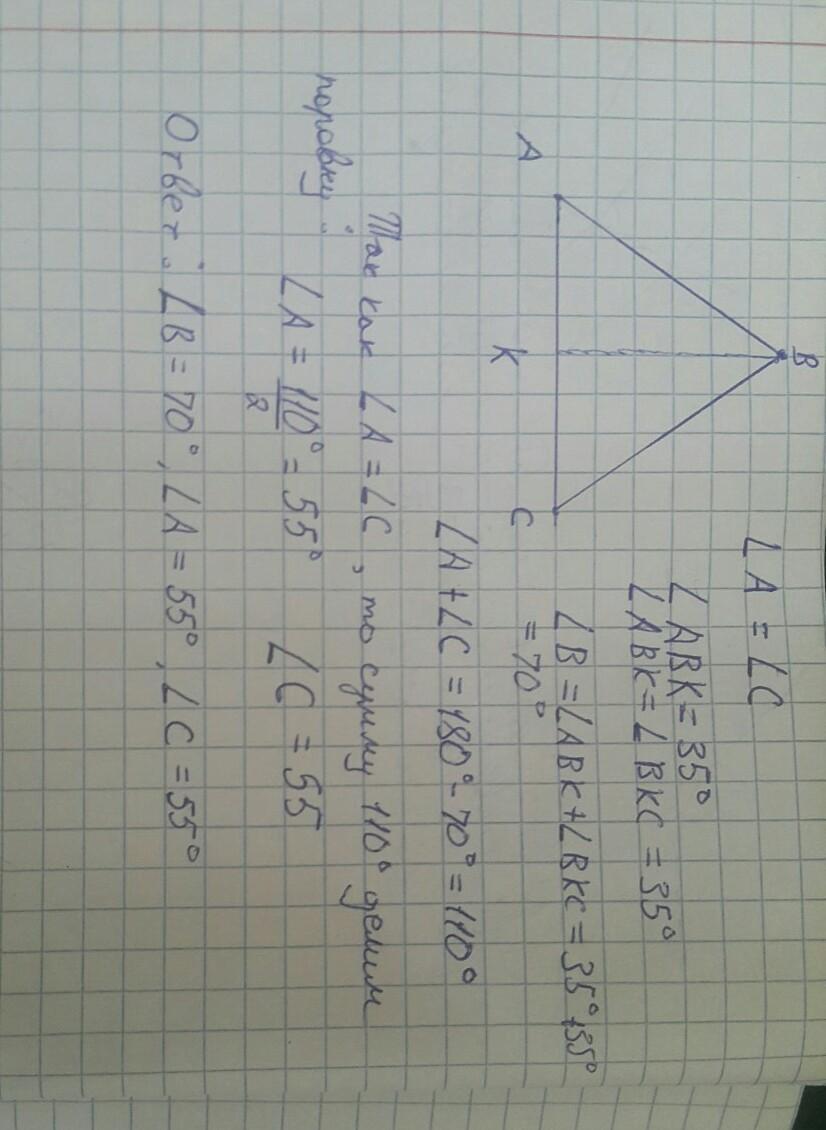 ∠A = ∠C
∠ABK = 35°
∠ABK = ∠BKC = 35°
B
A
K
C
∠B = ∠ABK + ∠BKC = 35° + 35°
= 70°
∠A + ∠C = 180° - 70° = 110°
Так как ∠A = ∠C, то сумму 110° делим
поровну:
∠A = 110°/2 = 55° ∠C = 55
Ответ: ∠B = 70°, ∠A = 55°, ∠C = 55°